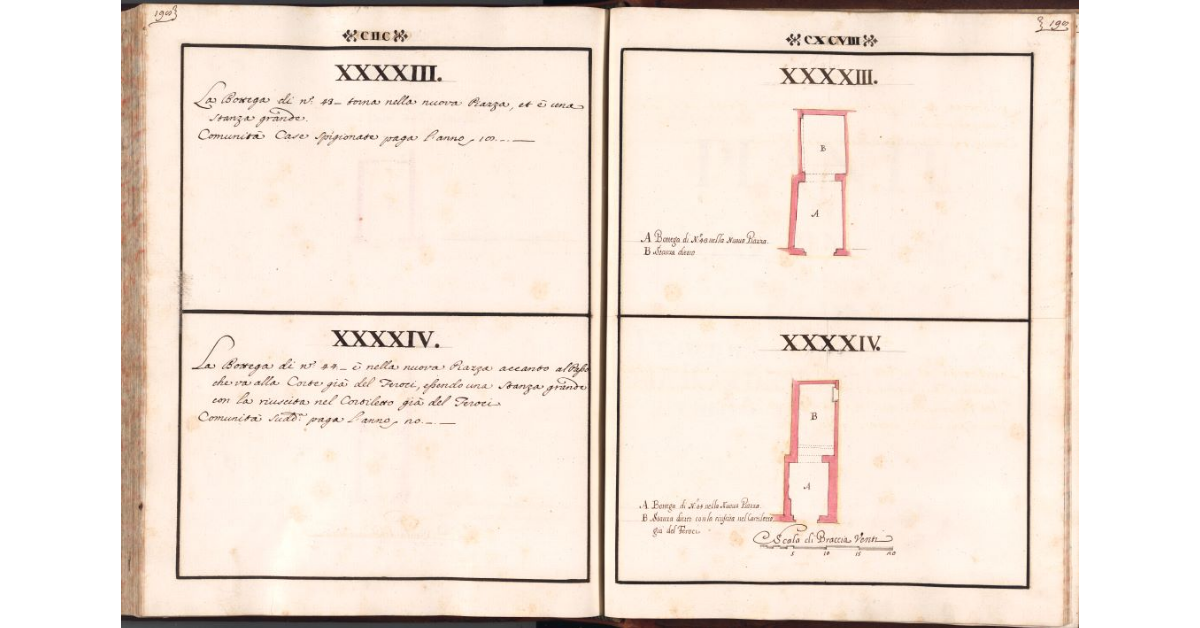 198
CIIC
XXXXIII.
La Bottega di n.° 43_ torna nella nuova Piazza, et è una
stanza grande.
Comunità Case spigionate paga l'anno
XXXXIV.
La Bottega di n.° 44_ è nella nuova Piazza accanto al
che va alla Corte già del Feroci, essendo una Stanza grande
con la riuscita nel Cortiletto già del Feroci
Comunità sudd.ª paga l'anno
198
CXCVIII
XXXXIII.
B
A
A Bottega di N.° nella Nuova Piazza
B Stanza dietro
XXXXIV.
B
A
A Bottega di N.° 44 nella Nuova Piazza
B Stanza dietro con la riuscita nel Cortiletto
già del Feroci
Scala di Braccia Venti
5 10 15 20